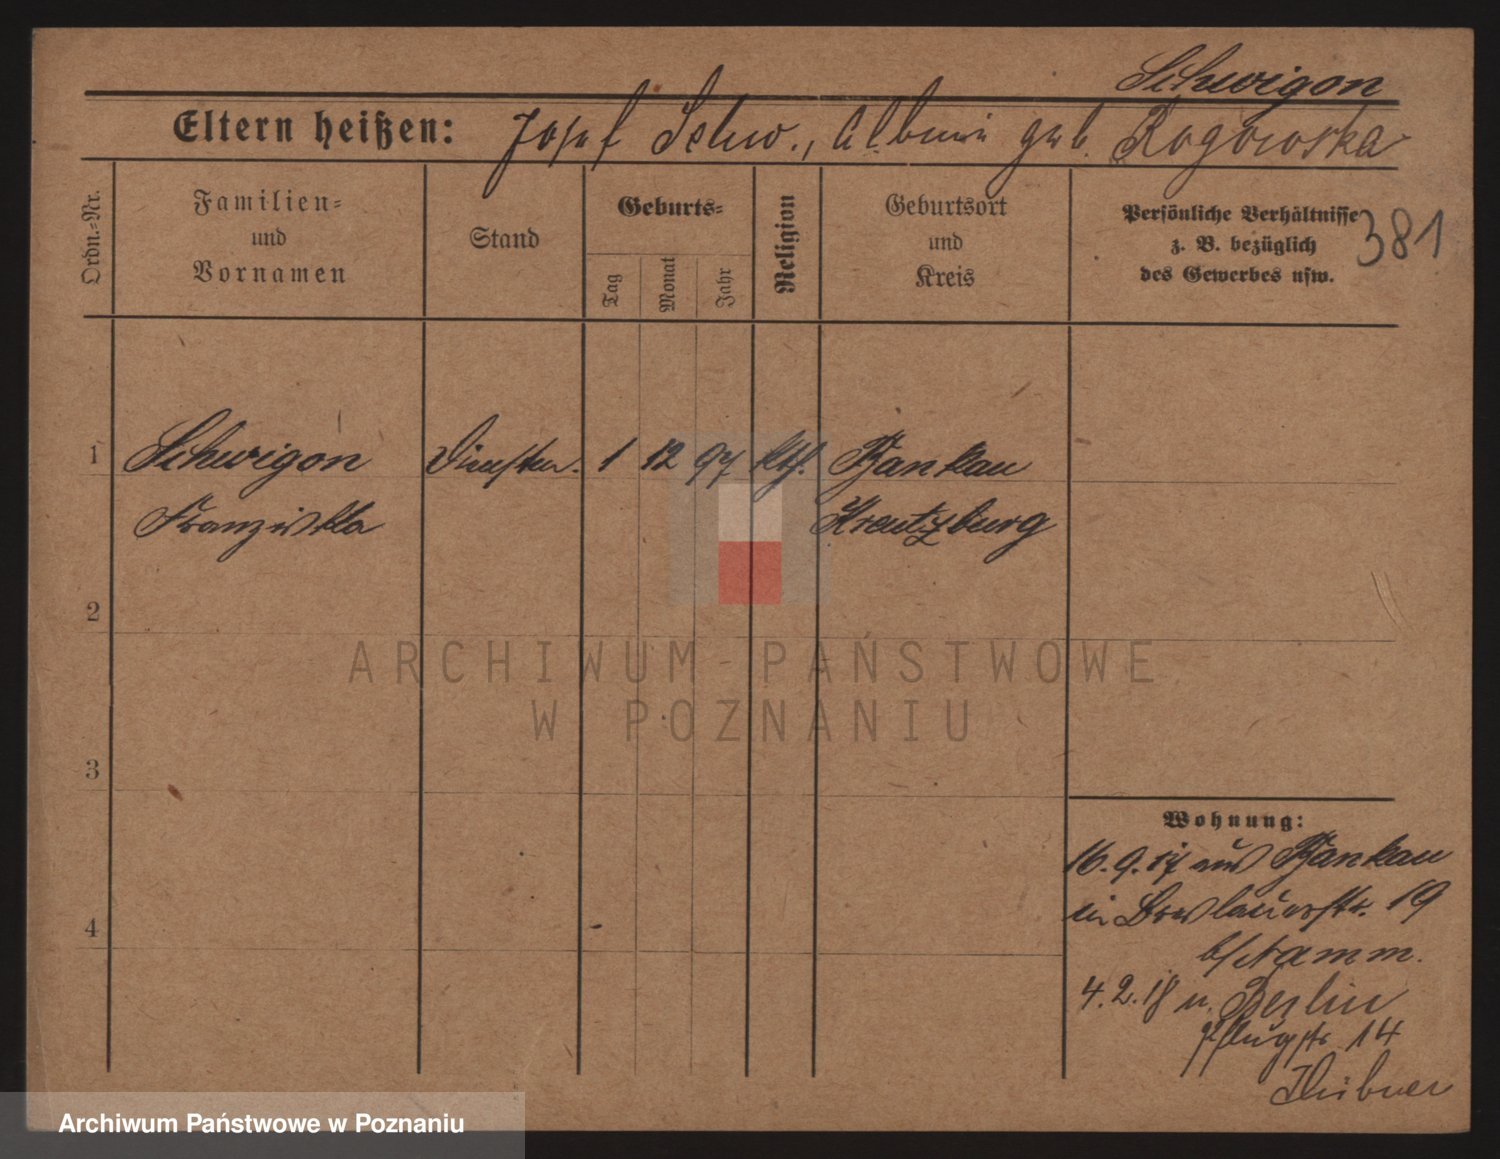 Schwigon
Eltern heißen: Josef Schw., Albina geb. Rogowska
Ordn.-Nr.
Familien-
und
Vornamen
Stand
Geburts-
Tag
Monat
Jahr
Religion
Geburtsort
und
Kreis
Persönliche Verhältnisse
z. B. bezüglich
des Gewerbes usw.
381
1 Schwigon 1 12 97 kth. Bankau
Franziska Kreutzburg
2
3
4
Wohnung:
16.9.17 aus Bankau
in Breslauerstr. 19
b/
4.2.18 n. Berlin
Pflugstr. 14
Hübner
ARCHIWUM PAŃSTWOWE
W POZNANIU
Archiwum Państwowe w Poznaniu